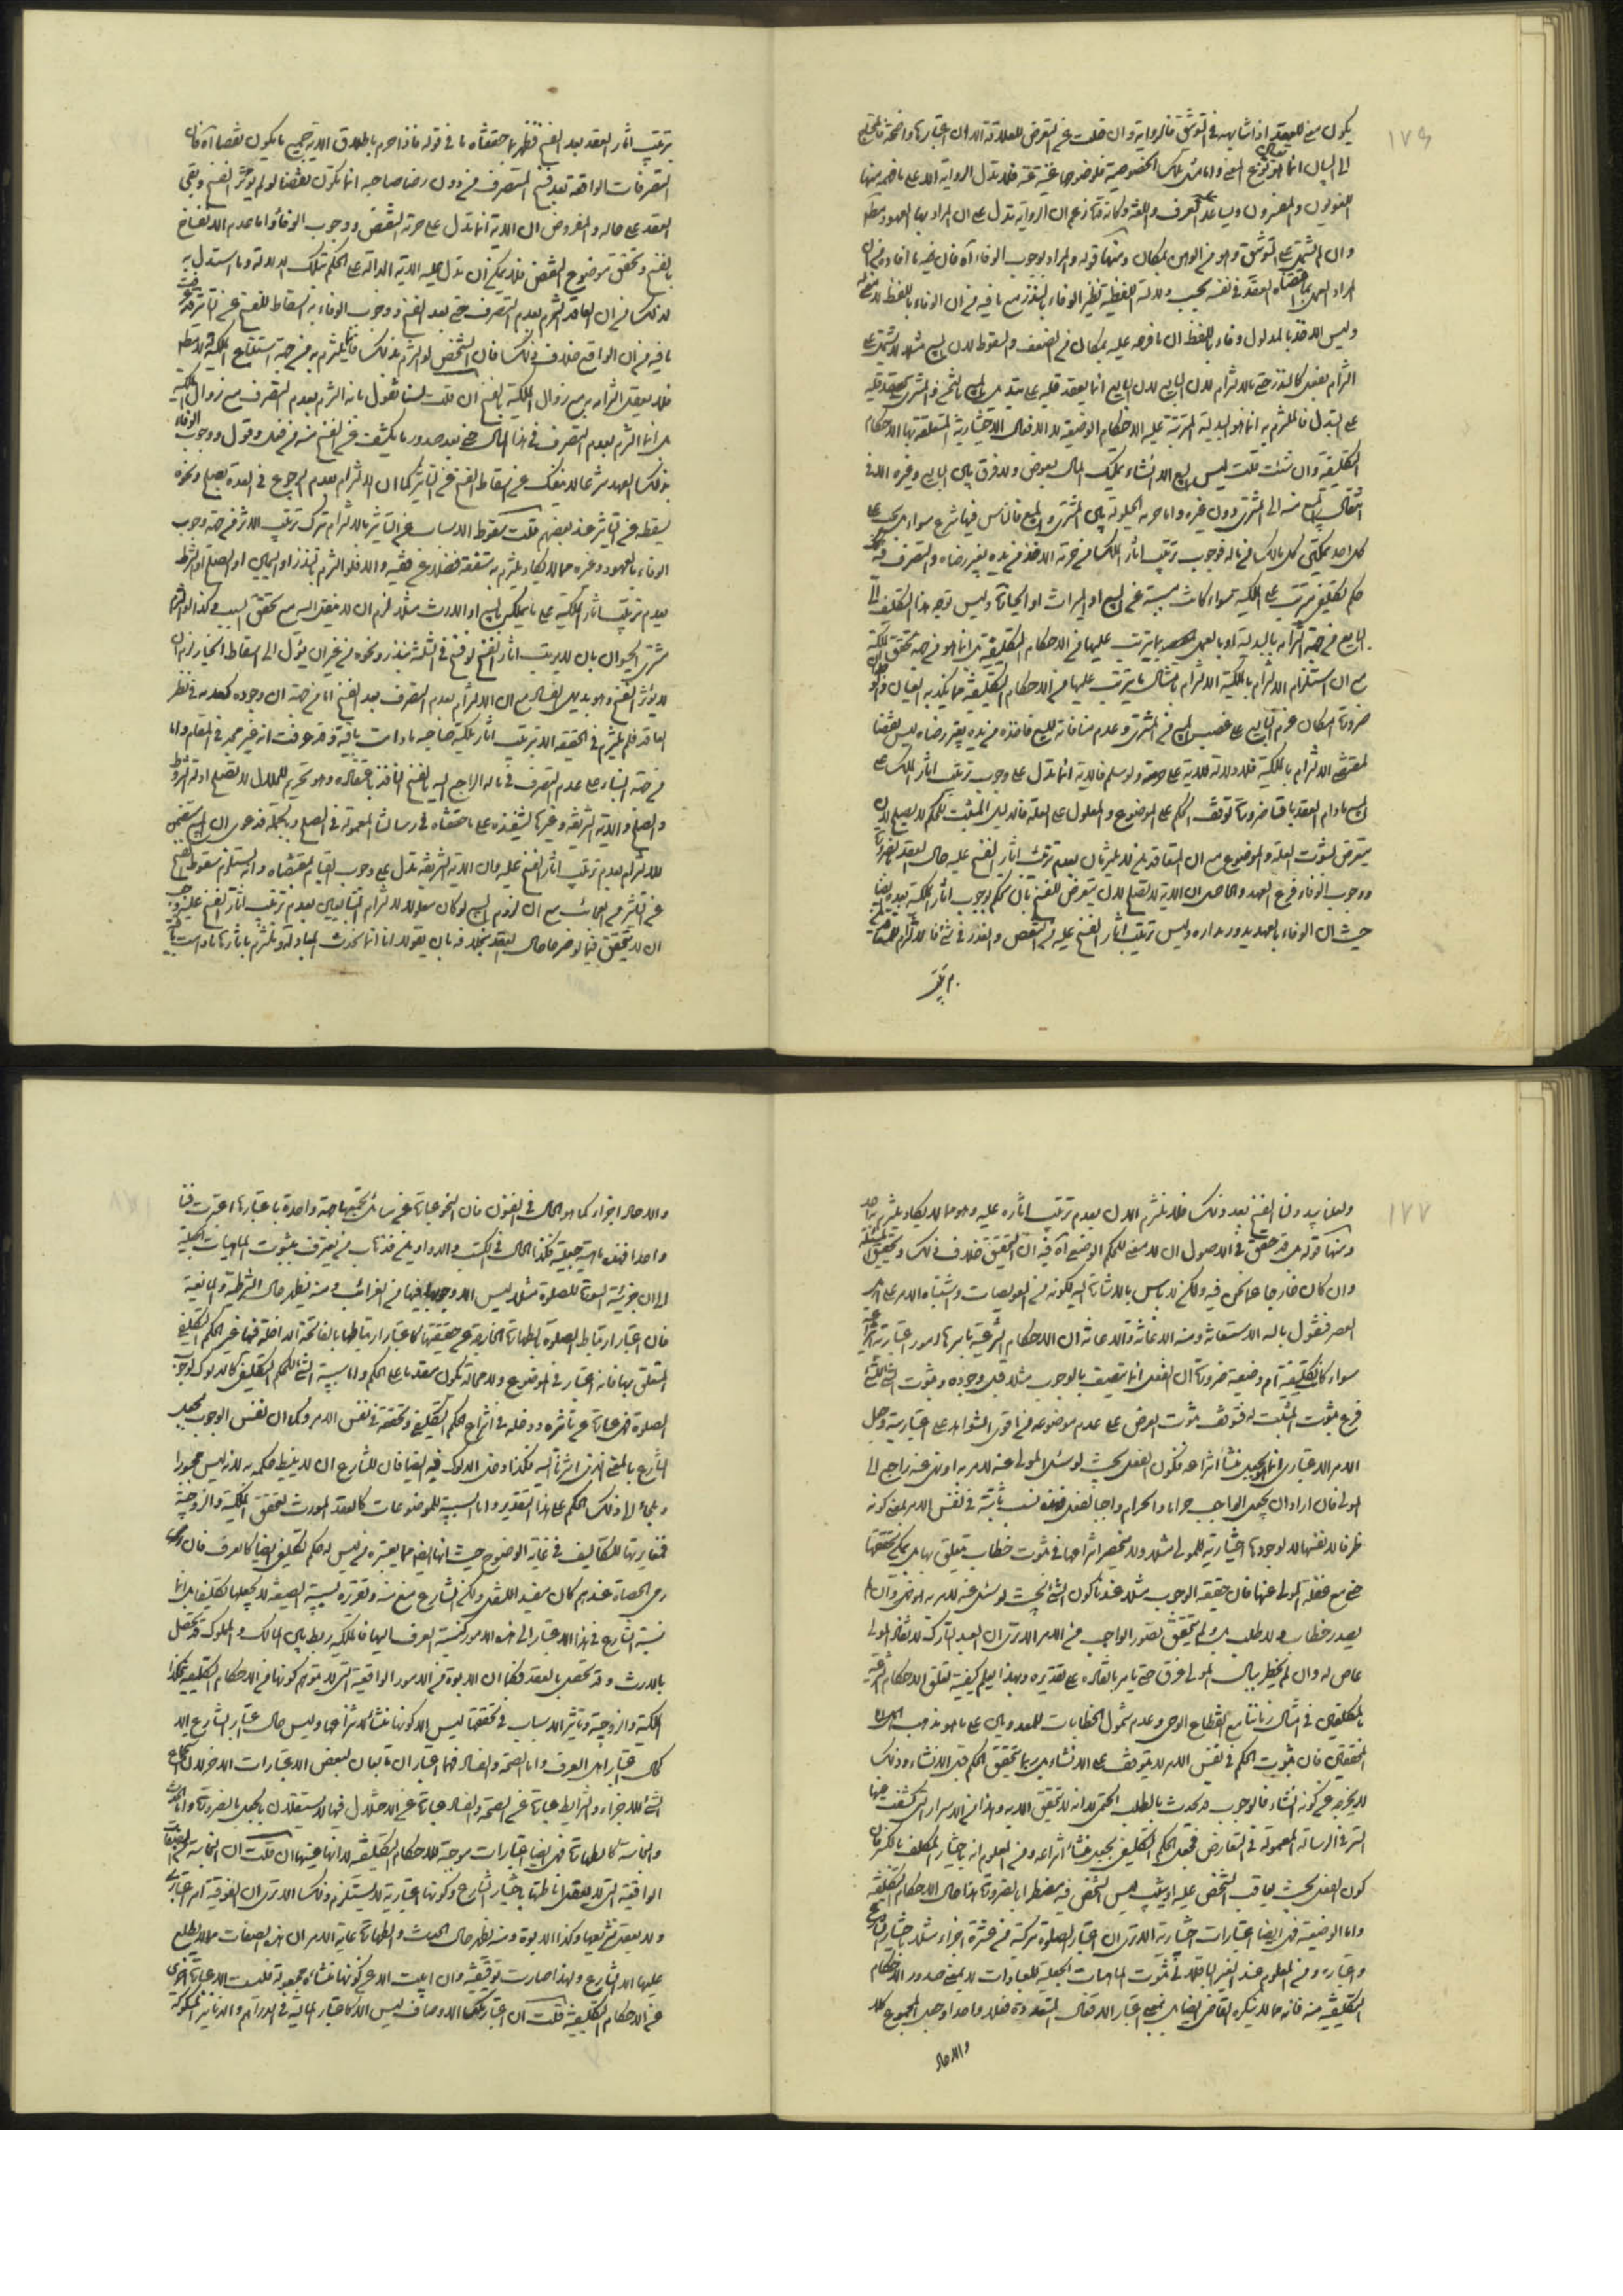 ١٧٦
يكون معنى للعقد اذا شابهه في التوثق فالرواية وان خلت عن التعرض للعلاقة الا ان اعتبارها واضحة فالمحتاج
الى البيان انما هو توضيح المعنى واما مسئلة تلك الخصوصية فلوضوحها غنية عنه فلا تدل الرواية الا على ما فهمه منها
اللغويون والمفسرون ويساعد عليه العرف واللغة وكانه قد زعم ان الرواية تدل على ان المراد بها العهود مطلقا
وان لم تشتمل على التوثق وهو من الوهن بمكان ومنها قوله والمراد بوجوب الوفاء اه فان فيه ما افاده من ان
المراد العمل بما اقتضاه العقد في نفسه بحسب دلالته اللفظية نظير الوفاء بالنذر مع ما فيه من ان الوفاء باللفظ لا معنى له
وليس الا اخذا بالمدلول وفاء باللفظ ان ما فرعه عليه بمكان من الضعف والسقوط لان البيع مثلا لا يشتمل على
التزام بفعل كالنذر حتى بالالتزام لان البايع انما يعقد قلبه على تبديل المبيع بالثمن والمشتري يعقد قلبه
على التبدل فالملتزم به انما هو البدلية المترتبة عليه الاحكام الوضعية لا الافعال الاختيارية المتعلقة بها الاحكام
التكليفية وان شئت قلت ليس البيع الا انشاء تمليك المال بعوض ولا فرق بين البايع وغيره الا في
انتقال المبيع منه الى المشتري دون غيره واما حرمة الحيلولة بين المشتري والمبيع فالناس فيها شرع سواء بل يجب على
كل احد تمكين كل مالك من ماله فوجوب ترتيب اثار الملك من حرمة الاخذ من يده بغير رضاه والتصرف فيه
حكم تكليفي مترتب على الملكية سواء كانت مسببة عن البيع او الميراث او الحيازة وليس توجه هذا التكليف الى
البايع من جهة التزامه بالبدلية او بالعمل بما يترتب عليها من الاحكام التكليفية بل انما هو من جهة تحقق الملكية
مع ان استلزام الالتزام بالملكية الالتزام بامتثال ما يترتب عليها من الاحكام التكليفية مما يكذبه العيان
ضرورة امكان عزم البايع على غصب المبيع من المشتري وعدم منافاته للبيع فاخذه من يده بغير رضاه ليس نقضا
لمقتضى الالتزام بالملكية فلا دلالة للاية على حرمته ولو سلم فالاية انما تدل على وجوب ترتيب اثار الملك على
المبيع ما دام العقد باقيا ضرورة توقف الحكم على الموضوع والمعلول على العلة فالدليل المثبت للحكم لا يصلح لان
يتعرض لثبوت العلة والموضوع مع ان المتعاقد لم يلتزم بان بعدم ترتيب اثار الفسخ عليه حال العقد
ووجوب الوفاء فرع العهد والحاصل ان الاية لا تصلح لان يتعرض للفسخ بان يحكم بوجوب اثار الملكية بعده ايضا
حيث ان الوفاء بالعهد يدور مداره وليس ترتيب اثار الفسخ عليه من النقض والغدر في شئ
ترتيب اثار العقد بعد الفسخ فظهر بما حققناه ما في قوله فاذا حرم باطلاق الاية جميع ما يكون نقضا اه فان
التصرفات الواقعة بعد فسخ المتصرف من دون رضا صاحبه انما تكون نقضا لو لم يؤثر الفسخ وبقي
العقد على حاله والمفروض ان الاية انما تدل على حرمة النقض ووجوب الوفاء واما عدم الانفساخ
بالفسخ وتحقق موضوع النقض فلا يمكن ان تدل عليه الاية الدالة على الحكم بتلك الدلالة وما استدل به
لذلك من ان العاقد التزم بعدم التصرف حتى بعد الفسخ ووجوب الوفاء به اسقاط للفسخ عن التاثير
ما فيه من ان الواقع خلاف ذلك فان الشخص لو التزم بذلك فانما يلتزم به من جهة استتباع الملكية له
فلا يعقل التزامه به مع زوال الملكية بالفسخ ان قلت لسنا نقول بانه التزم بعدم التصرف مع زوال الملكية
بل انما التزم بعدم التصرف في هذا المال حتى بعد صدور ما يكشف عن الفسخ منه من فعل وقول ووجوب الوفاء
بذلك العهد شرعا لا ينفك عن اسقاط الفسخ عن التاثير كما ان الالتزام بعدم الرجوع في العدة بصلح ونحوه
يسقطه عن التاثير عند بعضهم قلت سقوط الاسباب عن التاثير بالالتزام ترك ترتيب الاثر من جهة وجوب
الوفاء بالعهود وغيره مما لا يكاد يلتزم به متفقه فضلا عن فقيه والا فلو التزم بنذر او اليمين او الصلح او الشرط
بعدم ترتيب اثار الملكية على ما يملكه بالبيع او الارث مثلا لزم ان لا ينتقل اليه مع تحقق السبب وكذا لو التزم
مشتري الحيوان بان لا يرتب اثار الفسخ لو فسخ في الثلثة بنذر ونحوه من غير ان يؤل الى اسقاط الخيار لزم ان
لا يؤثر الفسخ وهو بديهي الفساد مع ان الالتزام بعدم التصرف بعد الفسخ اما من جهة ان وجوده كعدمه في نظر
العاقد فلم يلتزم في الحقيقة الا بترتيب اثار ملكية صاحبه ما دامت باقية وقد عرفت انه غير مجد في المقام واما
من جهة البناء على عدم التصرف في ماله الراجع اليه بالفسخ النافذ باعتقاده وهو تحريم للحلال لا تصلح ادلة الشروط
والصلح والاية الشريفة وغيرها لتنفيذه على ما حققناه في رسالتنا المعمولة في الصلح وبالجملة فدعوى ان البيع متضمن
للالتزام بعدم ترتيب اثار الفسخ عليه وان الاية الشريفة تدل على وجوب القيام بمقتضاه وانه يستلزم سقوط الفسخ
عن التاثير من العجائب مع ان لزوم البيع لو كان معلولا لالتزام المتبايعين بعدم ترتيب اثار الفسخ عليه
ان لا يتحقق فيما لو صرحا حال العقد بخلافه بان يقولا انا انما نحدث المبادلة ونلتزم باثارها ما دامت باقية
١٧٧
ولعلنا يبدو لنا الفسخ بعد ذلك فلا نلتزم الان بعدم ترتيب اثاره عليه وهو مما لا يكاد يلتزم به احد
ومنها قوله بل قد حقق في الاصول ان لا معنى للحكم الوضعي اه فيه ان التحقيق خلاف ذلك وتحقيق المسئلة
وان كان خارجا عما نحن فيه ولكن لا باس بالاشارة اليه لكونه من العويصات واشتباه الامر على اهل
العصر فنقول بالله الاستعانة ومنه الاغاثة والاعانة ان الاحكام الشرعية باسرها امور اعتبارية
سواء كان تكليفية ام وضعية ضرورة ان الفعل انما يتصف بالوجوب مثلا قبل وجوده وثبوت الشئ للشئ
فرع ثبوت المثبت له فتوقف ثبوت العرض على عدم موضوعه من اقوى الشواهد على اعتباريته وجعل
الامر الاعتباري انما هو بجعل منشا انتزاعه فكون الفعل بحيث لو سئل المولى عنه لامر به او نهى عنه راجع الى
المولى فان اراد ان يجعل الواجب حراما والحرام واجبا لفعل فهذه نسب ثابتة في نفس الامر بمعنى كونه
ظرفا لانفسها لا لوجودها اختيارية للمولى مثلا ولا ينحصر انتزاعها في ثبوت خطاب يتعلق بها بل يمكن تحققها
حتى مع غفلة المولى عنها فان حقيقة الوجوب مثلا عندنا كون الشئ بحيث لو سئل عنه لامر به المولى وان لم
يصدر خطاب ولا طلب بل ولم يتحقق تصور الواجب من الامر الا ترى ان العبد التارك لانقاذ المولى
عاص له وان لم يخطر ببال المولى غرق حتى يامر بانقاذه على تقديره وبهذا يعلم كيفية تعلق الاحكام الشرعية
بالمكلفين في امثال زماننا مع انقطاع الوحي وعدم شمول الخطابات للمعدومين على ما هو مذهب
المحققين فان ثبوت الحكم في نفس الامر لا يتوقف على الانشاء بل ربما يتحقق الحكم قبل الانشاء وذلك
لا يخرجه عن كونه انشاء فالوجوب قد يحدث بالطلب الحتمي لا انه لا يتحقق الا به وهذا من الاسرار التي كشفت عنها
الستر في الرسالة المعمولة في التعارض فجعل الحكم التكليفي بجعل منشا انتزاعه ومن المعلوم انه باختيار المكلف بالكسر فان
كون الفعل بحيث يعاقب الشخص عليه او يثيب ليس الشخص فيه مضطرا بالضرورة هذا حال الاحكام التكليفية
واما الوضعية فهي ايضا اعتبارات اختيارية الا ترى ان اعتبار الصلوة مركبة من عشرة اجزاء مثلا باختيار الشارع
واعتباره ومن المعلوم عند الغير الباقلاني ثبوت الماهيات الجعلية للعبادات لا بمعنى صدور الاحكام
التكليفية منه فانه مما لا ينكره القاضي ايضا بل بمعنى اعتبار الافعال المتعددة فعلا واحدا وجعل المجموع كلا
والاحاد
والاحاد اجزاء كما هو الحال في الفنون فان النحو عبارة عن مسائل تجمعها جهة واحدة باعتبارها اعتبرت فنا
واحدا فهذه ماهية جعلية وكذا الحال في الكتب والدواوين فذهاب من يعترف بثبوت الماهيات الجعلية
الى ان جزئية السورة للصلوة مثلا ليس الا وجوبها فيها من الغرائب ومنه يظهر حال الشرطية والمانعية
فان اعتبار ارتباط الصلوة بالطهارة الخارجة عن حقيقتها كاعتبار ارتباطها بالفاتحة الداخلة فيها غير الحكم التكليفي
المتعلق بها فانه اعتبار في الموضوع ولا محالة تكون متقدما على الحكم واما سببية الشئ للحكم التكليفي كالدلوك لوجوب
الصلوة فهي عبارة عن تاثيره ودخله في انتزاع الحكم التكليفي وتحققه في نفس الامر وكما ان نفس الوجوب بجعل
الشارع بالمعنى الذي اشرنا اليه فكذا دخل الدلوك فيه ايضا فان للشارع ان لا ينيط حكمه به لانه ليس مجبورا
وملجئا الى ذلك الحكم على هذا التقدير واما السببية للموضوعات كالعقد المورث لتحقق الملكية والزوجية
فمغايرتها للتكاليف في غاية الوضوح حيث انها ايضا مما يعتبره من ليس له حكم تكليفي ايضا كالعرف فان
رمي الحصاة عندهم كان مفيدا للنقل ولكن الشارع منع منه وتقريره لسببية الصيغة لا يجعلها تكليفا بل انما
نسبة الشارع في هذا الاعتبار الى هذه الامور كنسبة العرف اليها فالملكية ربط بين المالك والمملوك قد تحصل
بالارث وقد تحصل بالعقد فكما ان الابوة من الامور الواقعية التي لا يتوهم كونها من الاحكام التكليفية فكذا
الملكية والزوجية وتاثير الاسباب في تحققها ليس الا كونها منشا لانتزاعها وليس حال اعتبار الشارع الا
كحال اعتبار اهل العرف واما الصحة والفساد فهما اعتباران تابعان لبعض الاعتبارات الاخر لان اجتماع
الشئ للاجزاء والشرايط عبارة عن الصحة والفساد عبارة عن الاختلال فيها لا يستقلان بالجعل بالضرورة
والنجاسة كالطهارة فهي ايضا اعتبارات موجبة للاحكام التكليفية لا انها عينها ان قلت ان النجاسة من الصفات
الواقعية التي لا يعقل اناطتها باختيار الشارع وكونها اعتبارية لا يستلزم ذلك الا ترى ان الفوقية امر اعتباري
ولا يعقل تشريعها وكذا الابوة ومنه يظهر حال الحدث والطهارة غاية الامر ان هذه الصفات مما لا يطلع
عليها الا الشارع ولهذا صارت توقيفية وان ابيت الا عن كونها منشاة مجعولة فليست الا عبارة اخرى
عن الاحكام التكليفية قلت ان اعتبار تلك الاوصاف ليس الا كاعتبار المالية في الدراهم والدنانير المسكوكة